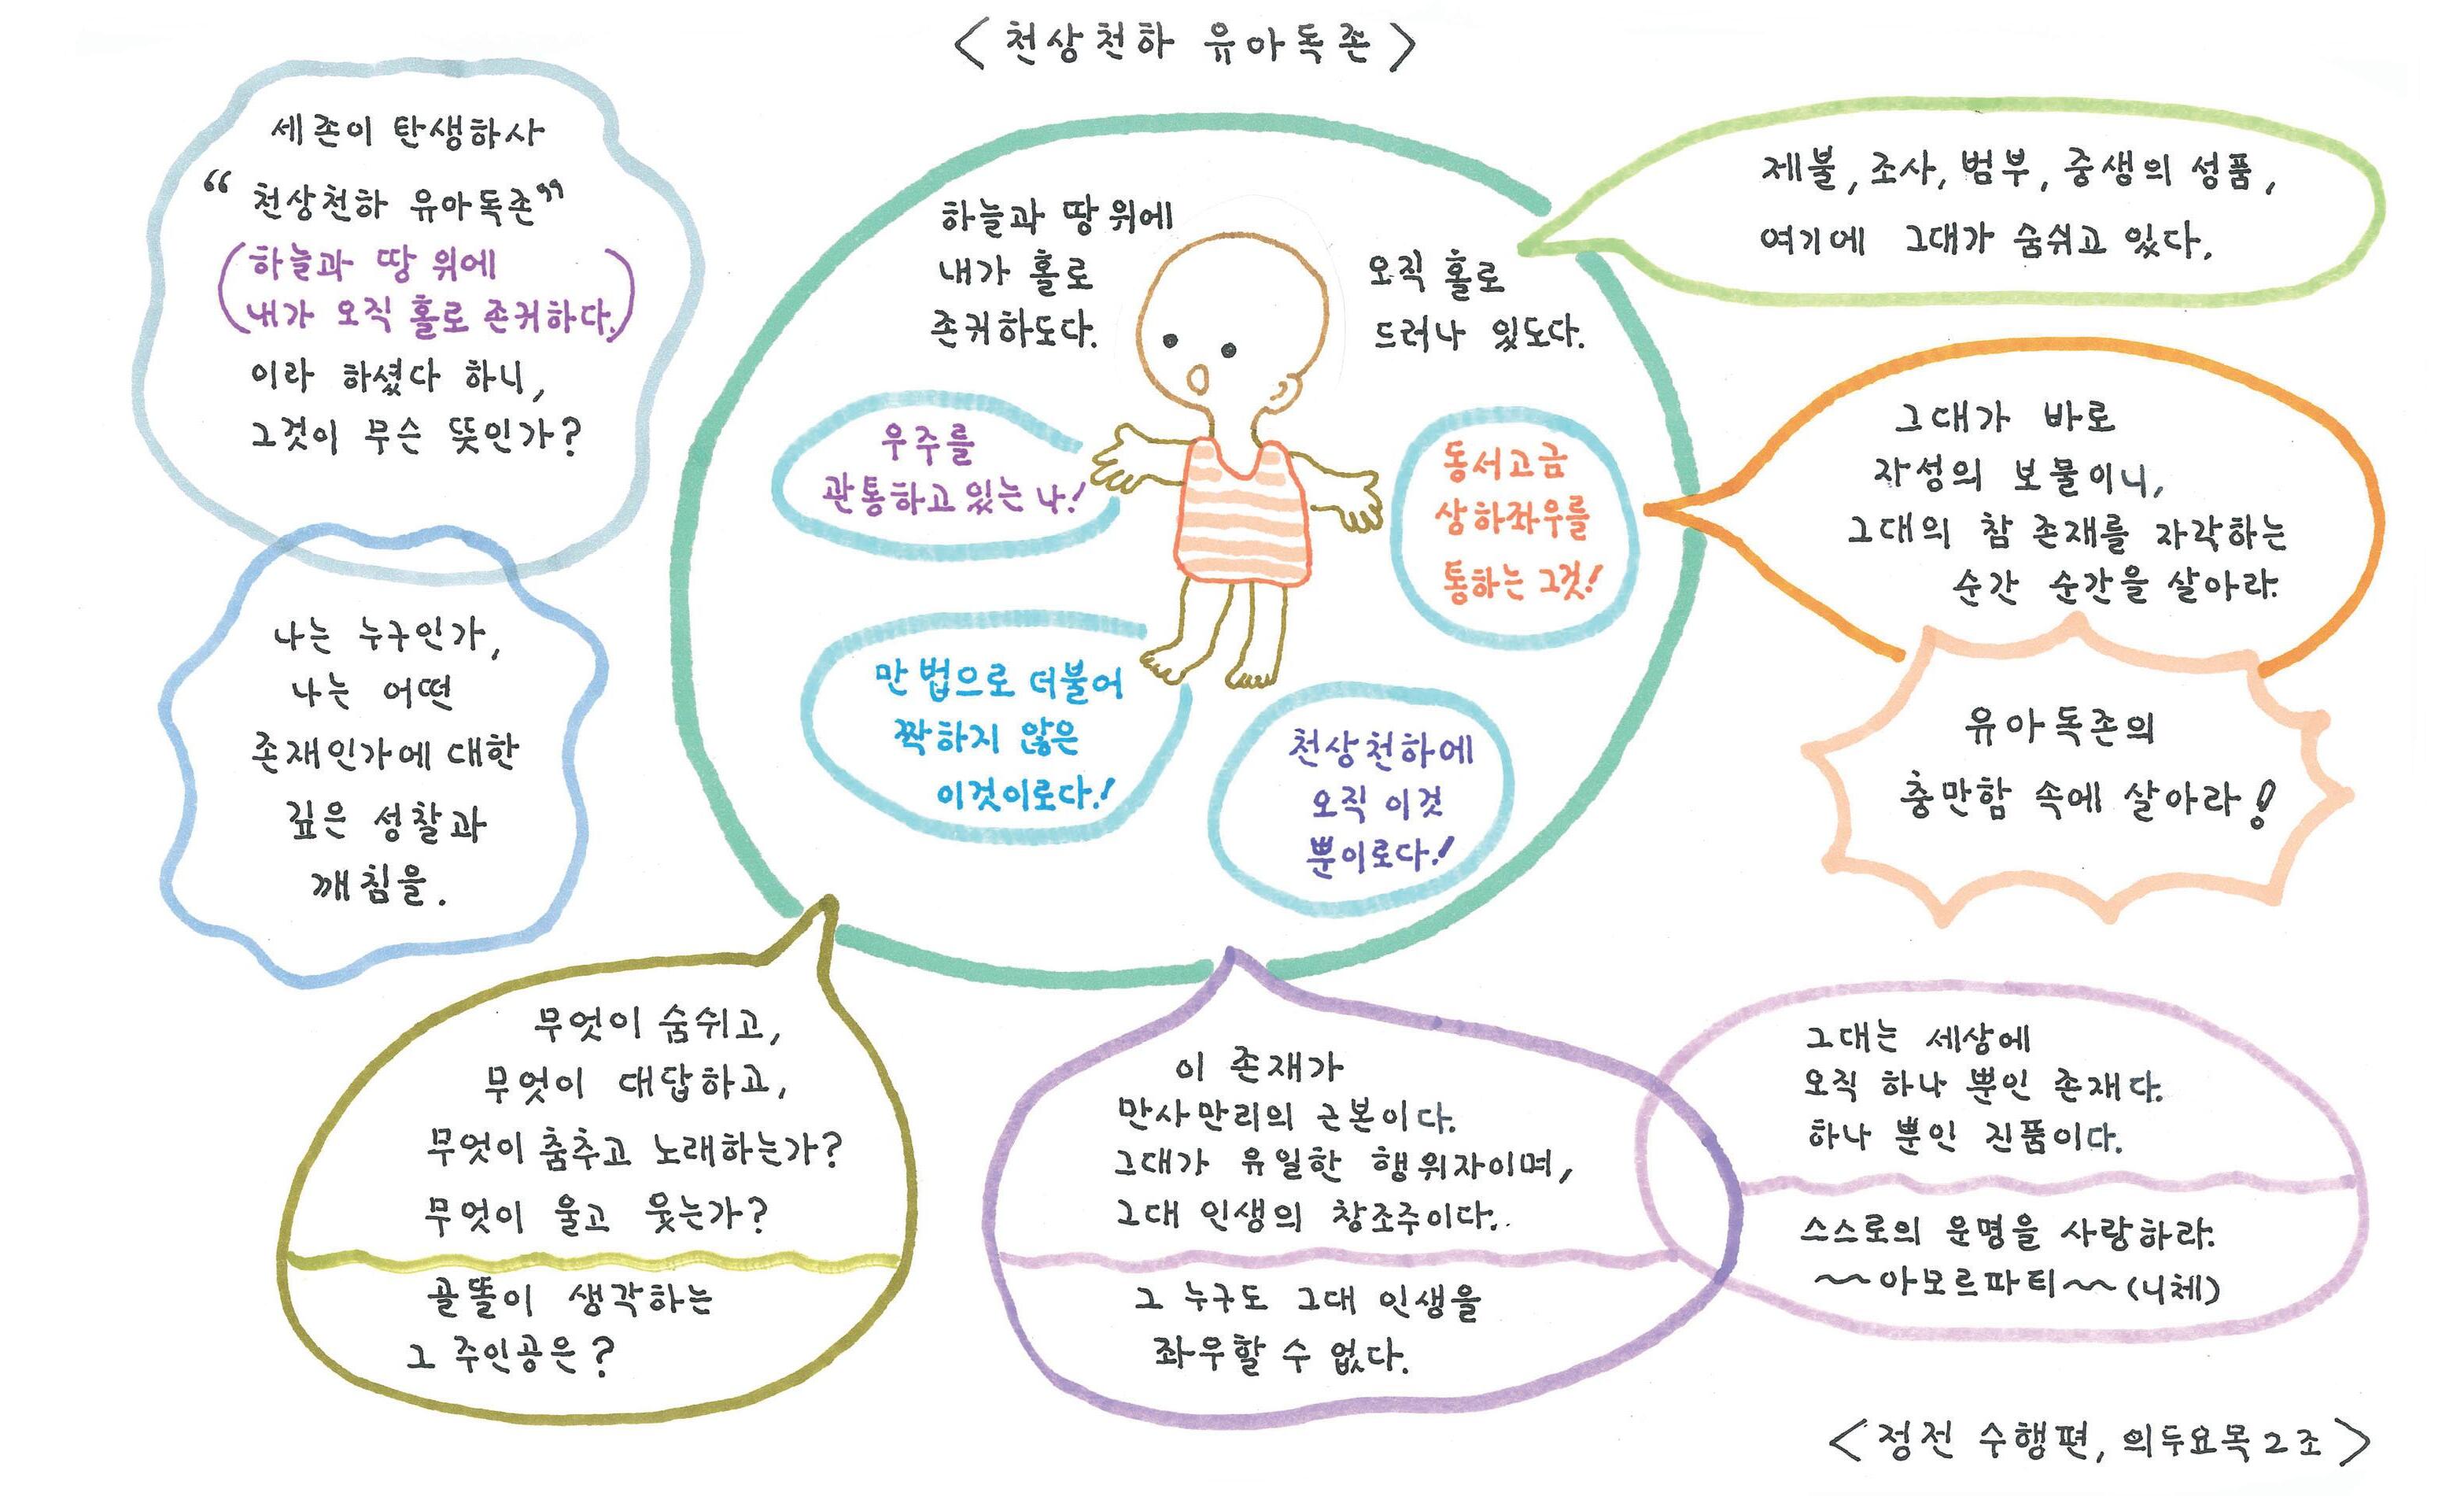 < 천상천하 유아독존 >
세존이 탄생하사
“ 천상천하 유아독존”
(하늘과 땅 위에
내가 오직 홀로 존귀하다.)
이라 하셨다 하니,
그것이 무슨 뜻인가?
나는 누구인가,
나는 어떤
존재인가에 대한
깊은 성찰과
깨침을.
하늘과 땅 위에
내가 홀로
존귀하도다.
오직 홀로
드러나 있도다.
우주를
관통하고 있는 나!
동서고금
상하좌우를
통하는 그것!
만 법으로 더불어
짝하지 않은
이것이로다!
천상천하에
오직 이것
뿐이로다!
제불, 조사, 범부, 중생의 성품,
여기에 그대가 숨쉬고 있다.
그대가 바로
자성의 보물이니,
그대의 참 존재를 자각하는
순간 순간을 살아라.
유아독존의
충만함 속에 살아라!
무엇이 숨쉬고,
무엇이 대답하고,
무엇이 춤추고 노래하는가?
무엇이 울고 웃는가?
골똘이 생각하는
그 주인공은?
이 존재가
만사만리의 근본이다.
그대가 유일한 행위자이며,
그대 인생의 창조주이다.
그 누구도 그대 인생을
좌우할 수 없다.
그대는 세상에
오직 하나 뿐인 존재다.
하나 뿐인 진품이다.
스스로의 운명을 사랑하라.
~~아모르파티~~(니체)
< 정전 수행편, 의두요목 2조 >